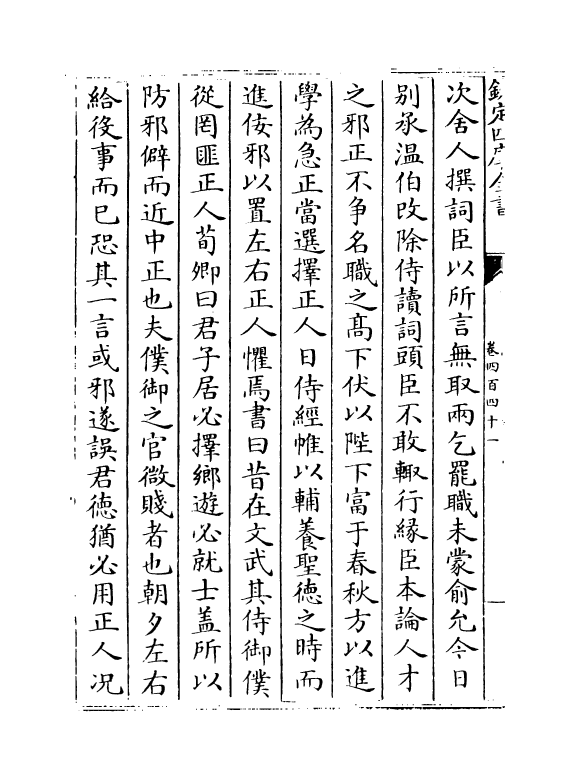 欽定四庫全書
卷四百四十一
次舍人撰詞臣以所言無取兩乞罷職未蒙俞允今日
别承温伯改除侍讀詞頭臣不敢輙行緣臣本論人才
之邪正不争名職之髙下伏以陛下富于春秋方以進
學為急正當選擇正人日侍經帷以輔養聖徳之時而
進侫邪以置左右正人懼焉書曰昔在文武其侍御僕
從罔匪正人荀卿曰君子居必擇鄉遊必就士盖所以
防邪僻而近中正也夫僕御之官微賤者也朝夕左右
給役事而已恐其一言或邪遂誤君徳猶必用正人况